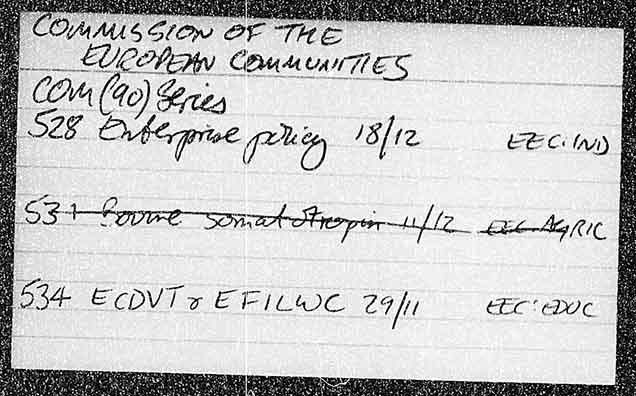 COMMISSION OF THE
EUROPEAN COMMUNITIES
COM(90) Series
528 Enterprise policy 18/12 EEC:IND
531 Bovine somatotropin 11/12 EEC:AGRIC
534 ECDVT & EFILWC 29/11 EEC:EDUC